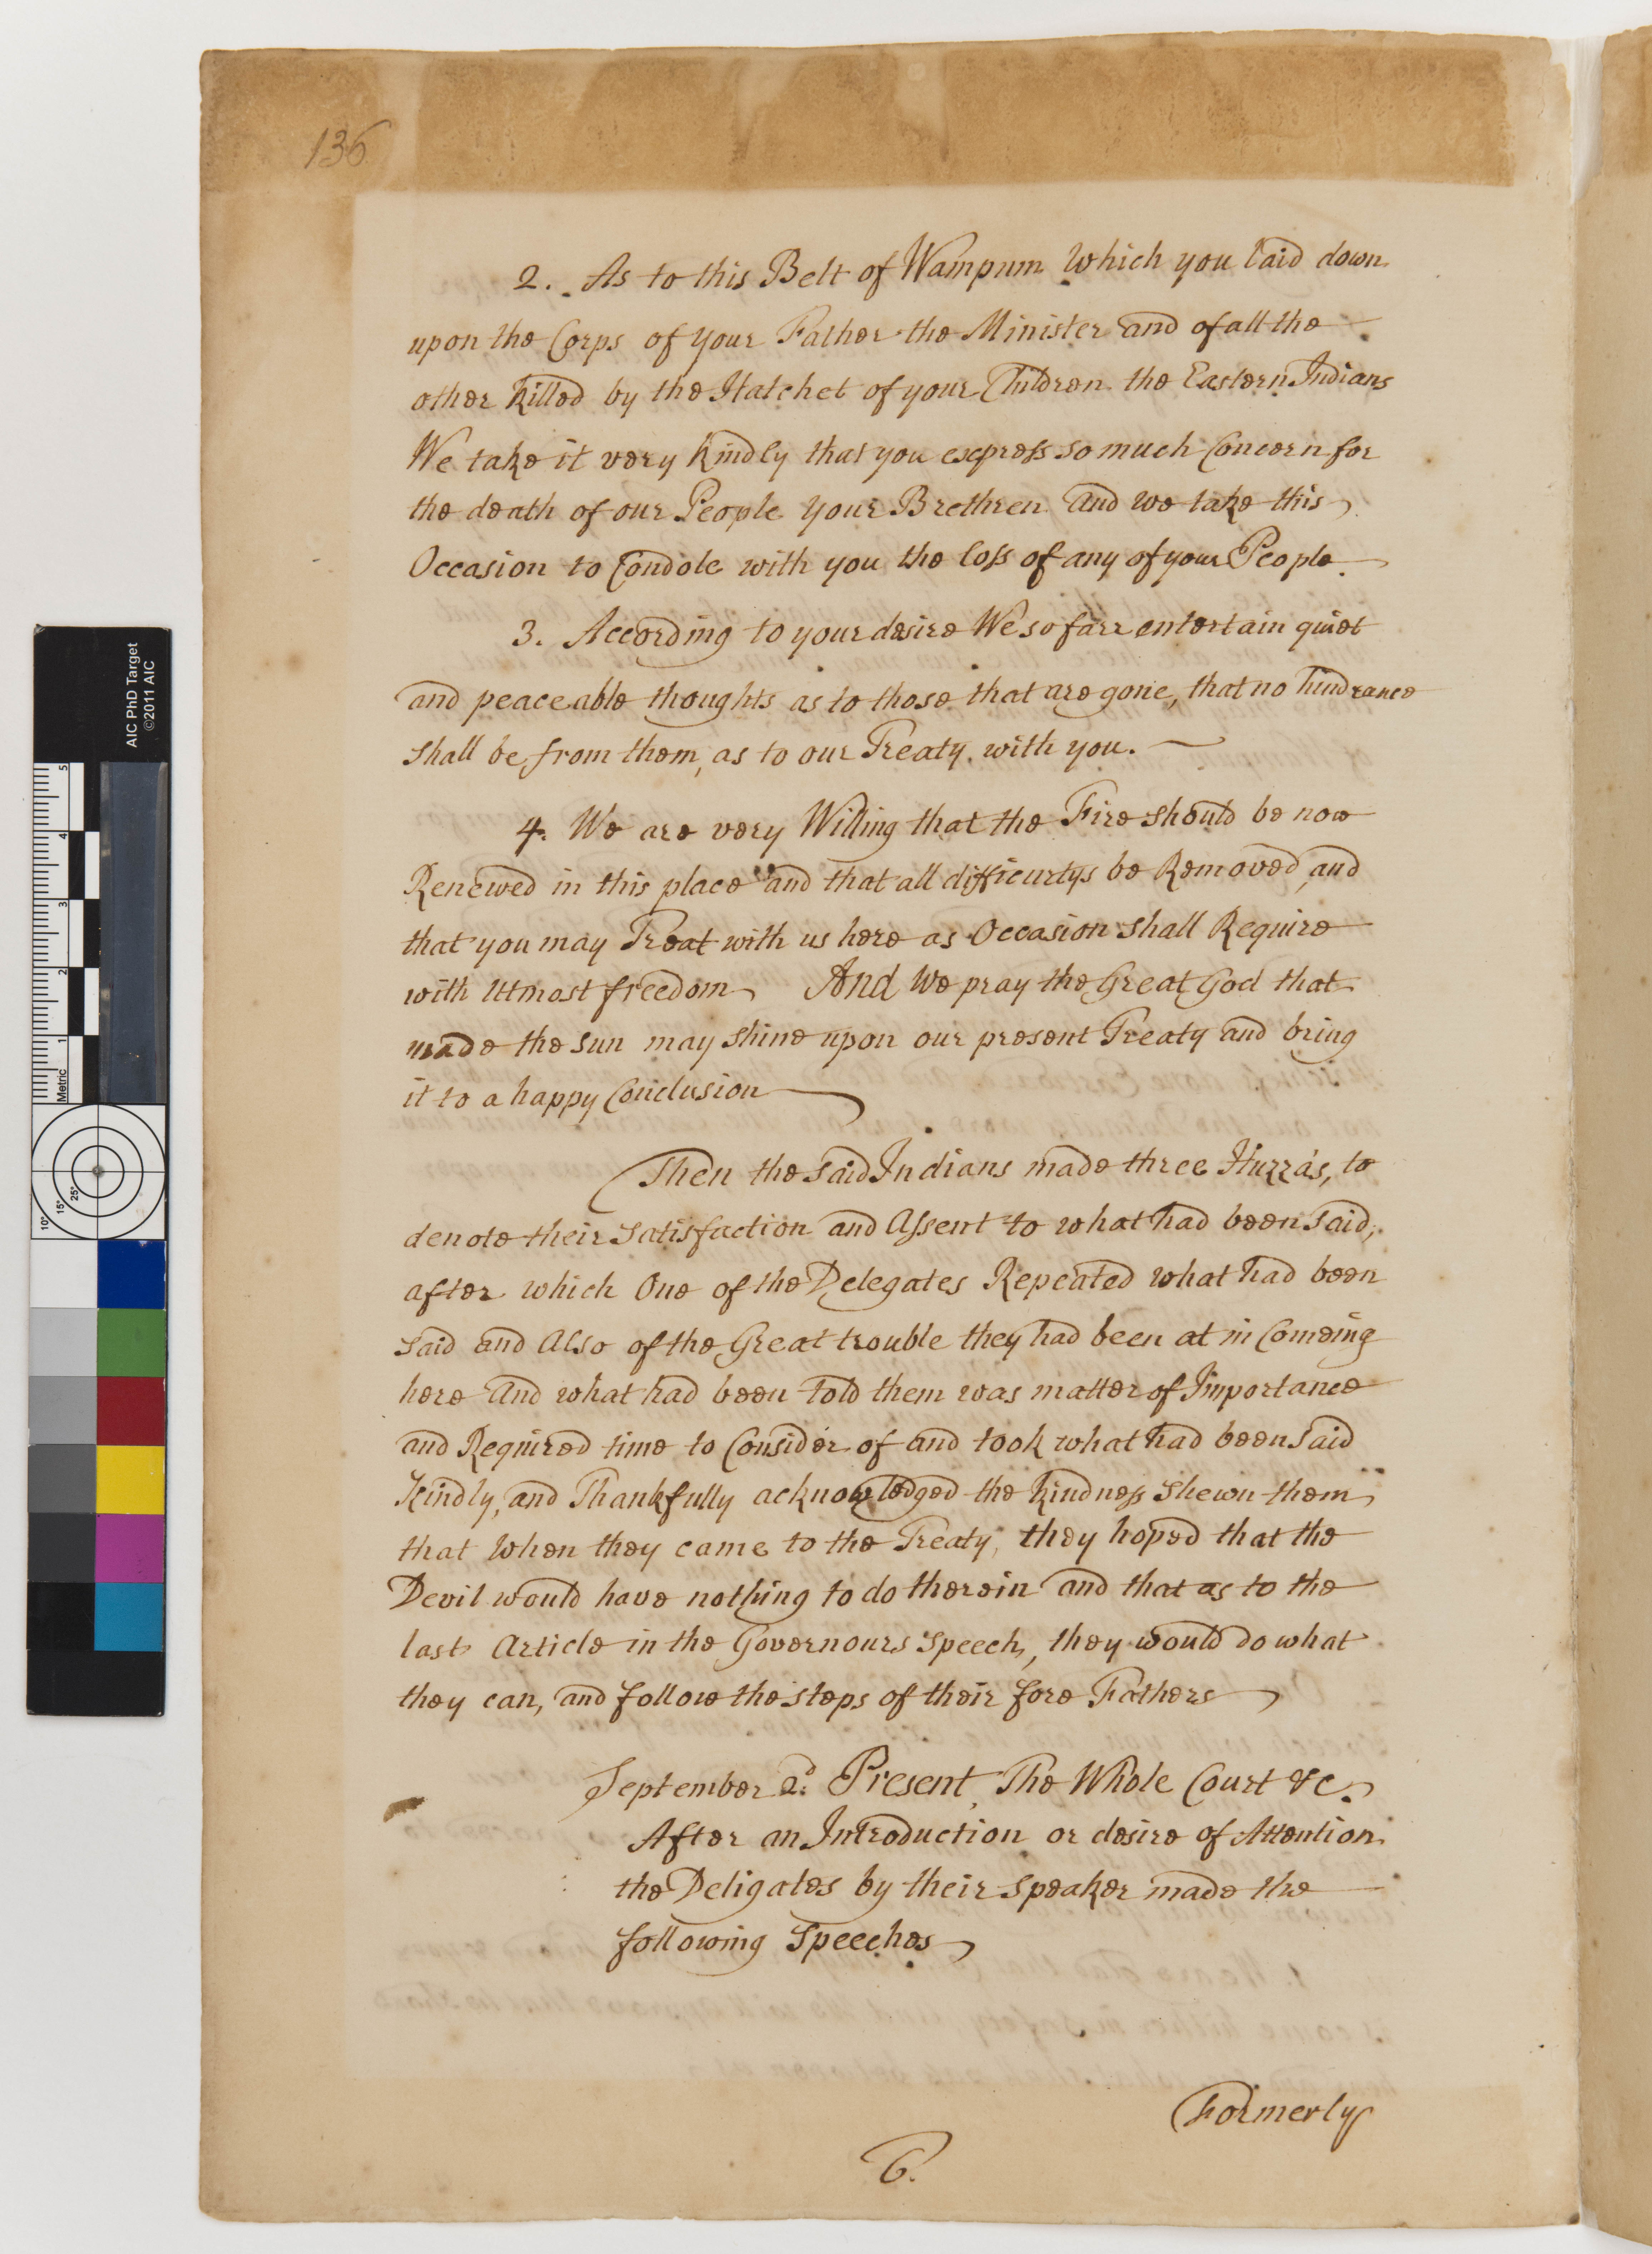 136
2. As to this Belt of Wampum Which you laid down
upon the Corps of your Father the Minister and of all the
other killed by the Hatchet of your Children the Eastern Indians
We take it very kindly that you express so much Concern for
the death of our People your Brethren and we take this
Occasion to Condole with you the loss of any of your People
3. According to your desire We so farr entertain quiet
and peaceable thoughts as to those that are gone, that no hindrance
shall be from them, as to our Treaty with you.
4. We are very Willing that the Fire should be now
Renewed in this place and that all difficurtys be Removed, and
that you may Treat with us here as Occasion shall Require
with Utmost freedom And We pray the Great God that
made the sun may shine upon our present Treaty and bring
it to a happy Conclusion
Then the said Indians made three Huzza's, to
denote their satisfaction and Assent to what had been said;
after which One of the Delegates Repeated what had been
said and Also of the Great trouble they had been at in Comeing
here And what had been told them was matter of Importance
and Required time to Consider of and took what had been said
Kindly, and Thankfully acknowledged the kindness shewn them
that When they came to the Treaty, they hoped that the
Devil would have nothing to do therein and that as to the
last Article in the Governours Speech, they would do what
they can, and follow the steps of their fore Fathers
September 2d. Present, The Whole Court &c.
After an Introduction or desire of Attention
the Deligates by their speaker made the
following Speeches
Formerly
6.
AIC PhD Target
©2011 AIC
5
4
3
2
1
Metric
10°
15°
25°